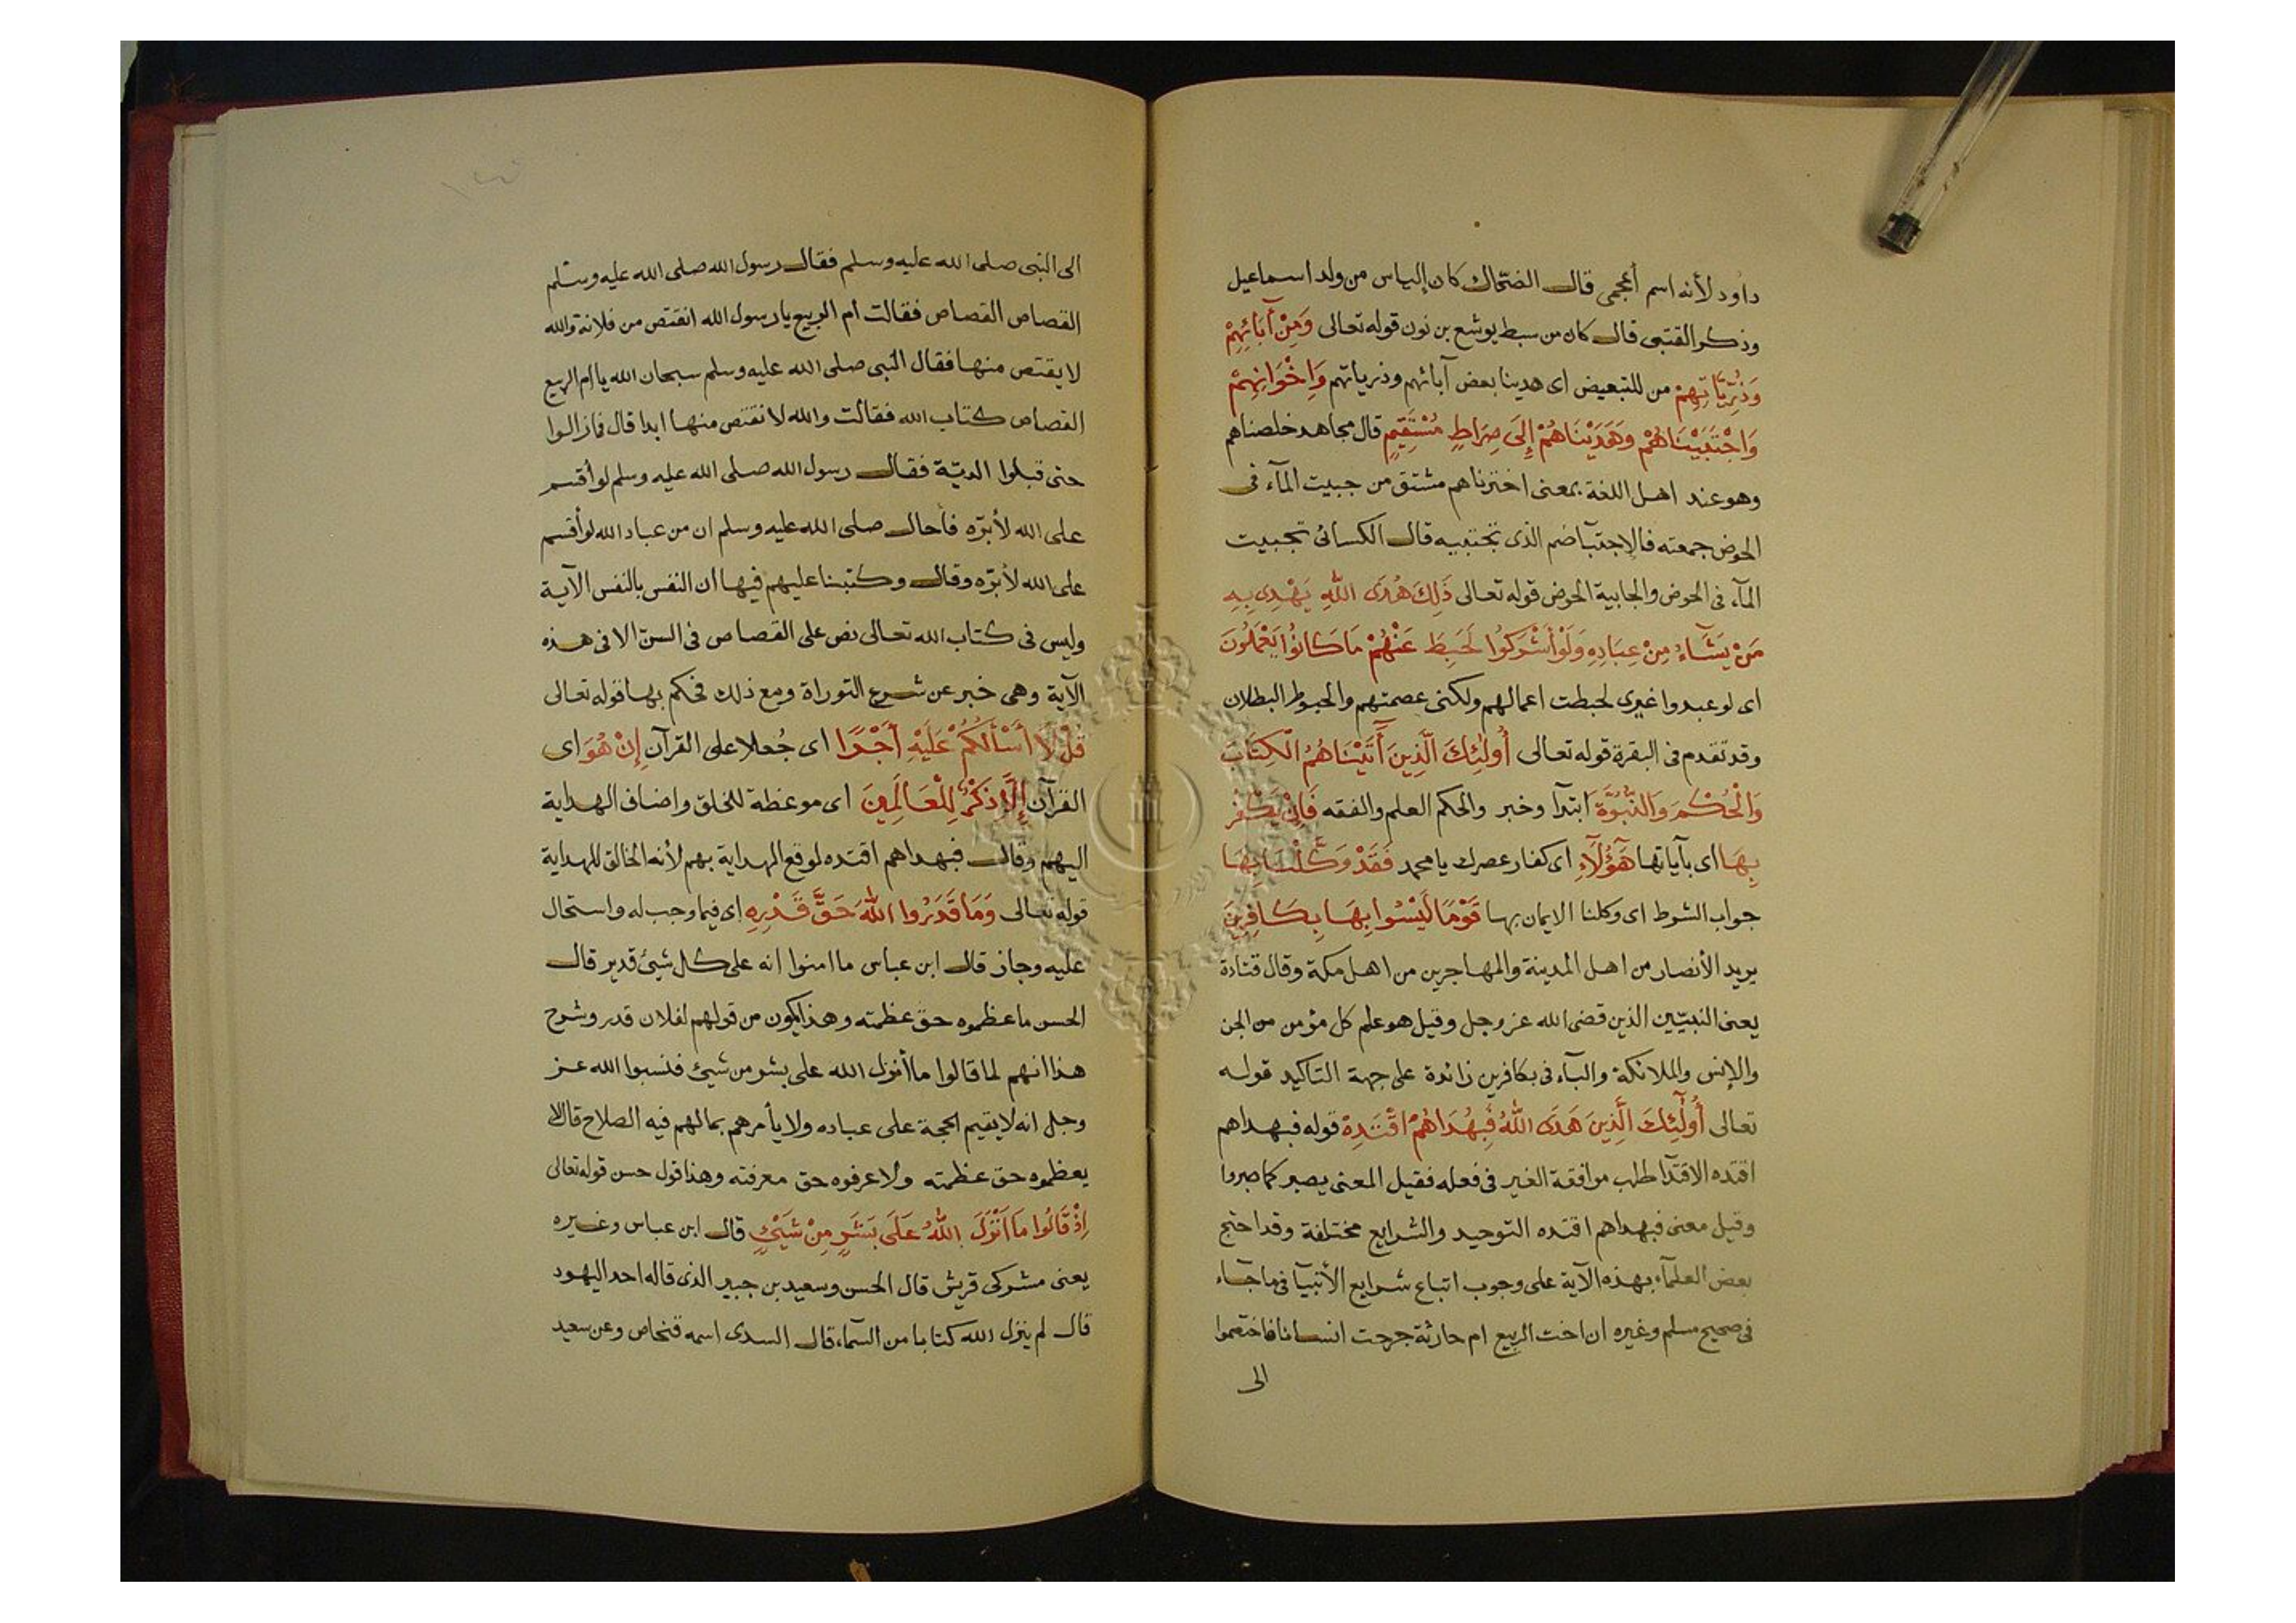 داود لأنه اسم أعجمى قال الضحاك كان إلياس من ولد اسماعيل
وذكر القتبى قال كان من سبط يوشع بن نون قوله تعالى وَمِنْ آبَائِهِمْ
وَذُرِّيَّاتِهِمْ من للتبعيض اى هدينا بعض آبائهم وذرياتهم وَاِخْوَانِهِمْ
وَاجْتَبَيْنَاهُمْ وَهَدَيْنَاهُمْ إِلَى صِرَاطٍ مُسْتَقِيمٍ قال مجاهد خلصناهم
وهو عند اهل اللغة بمعنى اخترناهم مشتق من جبيت المآء فى
الحوض جمعته فالإجتبآ ضم الذى تجتبيه قال الكسائى تجبيت
المآء فى الحوض والجابية الحوض قوله تعالى ذَلِكَ هُدَى اللهِ يَهْدِى بِهِ
مَنْ يَشَآءُ مِنْ عِبَادِهِ وَلَوْ أَشْرَكُوا لَحَبِطَ عَنْهُمْ مَا كَانُوا يَعْمَلُونَ
اى لو عبدوا غيرى لحبطت اعمالهم ولكنى عصمتهم والحبوط البطلان
وقد تقدم فى البقرة قوله تعالى أُولَئِكَ الَّذِينَ أَتَيْنَاهُمُ الْكِتَابَ
وَالْحُكْمَ وَالنُّبُوَّةَ ابتدآ وخبر والحكم العلم والفقه فَإِنْ يَكْفُرْ
بِهَا اى بآياتها هَؤُلَآءِ اى كفار عصرك يا محمد فَقَدْ وَكَّلْنَا بِهَا
جواب الشرط اى وكلنا الايمان بها قَوْمًا لَيْسُوا بِهَا بِكَافِرِينَ
يريد الأنصار من اهل المدينة والمهاجرين من اهل مكة وقال قتادة
يعنى النبيين الذين قضى الله عز وجل وقيل هو علم كل مؤمن من الجن
والإنس والملائكة والبآء فى بكافرين زائدة على جهة التاكيد قوله
تعالى أُولَئِكَ الَّذِينَ هَدَى اللهُ فَبِهُدَاهُمُ اقْتَدِهْ قوله فبهداهم
اقتده الاقتدآ طلب موافقة الغير فى فعله فقيل المعنى يصبر كما صبروا
وقيل معنى فبهداهم اقتده التوحيد والشرايع مختلفة وقد احتج
بعض العلمآء بهذه الآية على وجوب اتباع شرايع الأنبيآ فى ما جآء
فى صحيح مسلم وغيره ان اخت الربيع ام حارثة جرحت انسانا فاختصموا
الى
الى النبى صلى الله عليه وسلم فقال رسول الله صلى الله عليه وسلم
القصاص القصاص فقالت ام الربيع يا رسول الله انقتص من فلانة والله
لا يقتص منها فقال النبى صلى الله عليه وسلم سبحان الله يا ام الربيع
القصاص كتاب الله فقالت والله لا نقتص منها ابدا قال فما زالوا
حتى قبلوا الديّة فقال رسول الله صلى الله عليه وسلم لو أقسم
على الله لأبرّه فأحال صلى الله عليه وسلم ان من عباد الله لو أقسم
على الله لأبرّه وقال وكتبنا عليهم فيها ان النفس بالنفس الآية
وليس فى كتاب الله تعالى نص على القصاص فى السنّ الا فى هذه
الآية وهى خبر عن شرع التوراة ومع ذلك فحكم بها قوله تعالى
قُلْ لَا أَسْأَلُكُمْ عَلَيْهِ أَجْرًا اى جُعلا على القرآن إِنْ هُوَ اى
القرآن إِلَّا ذِكْرٌ لِلْعَالَمِينَ اى موعظة للخلق واضاف الهداية
اليهم وقال فبهداهم اقتده لوقع الهداية بهم لأنه الخالق للهداية
قوله تعالى وَمَا قَدَرُوا اللهَ حَقَّ قَدْرِهِ اى فيما وجب له واستحال
عليه وجاز قال ابن عباس ما امنوا انه على كل شيئ قدير قال
الحسن ما عظموه حق عظمته وهذا يكون من قولهم لفلان قدر وشرح
هذا انهم لما قالوا ما أنزل الله على بشر من شيئ فنسبوا الله عز
وجل انه لا يقيم الحجة على عباده ولا يأمرهم بما لهم فيه الصلاح قال لا
يعظموه حق عظمته ولا عرفوه حق معرفته وهذا قول حسن قوله تعالى
اِذْ قَالُوا مَا اَنْزَلَ اللهُ عَلَى بَشَرٍ مِنْ شَيْئٍ قال ابن عباس وغيره
يعنى مشركى قريش قال الحسن وسعيد بن جبير الذى قاله احد اليهود
قال لم ينزل الله كتابا من السمآء قال السدى اسمه فنحاص وعن سعيد